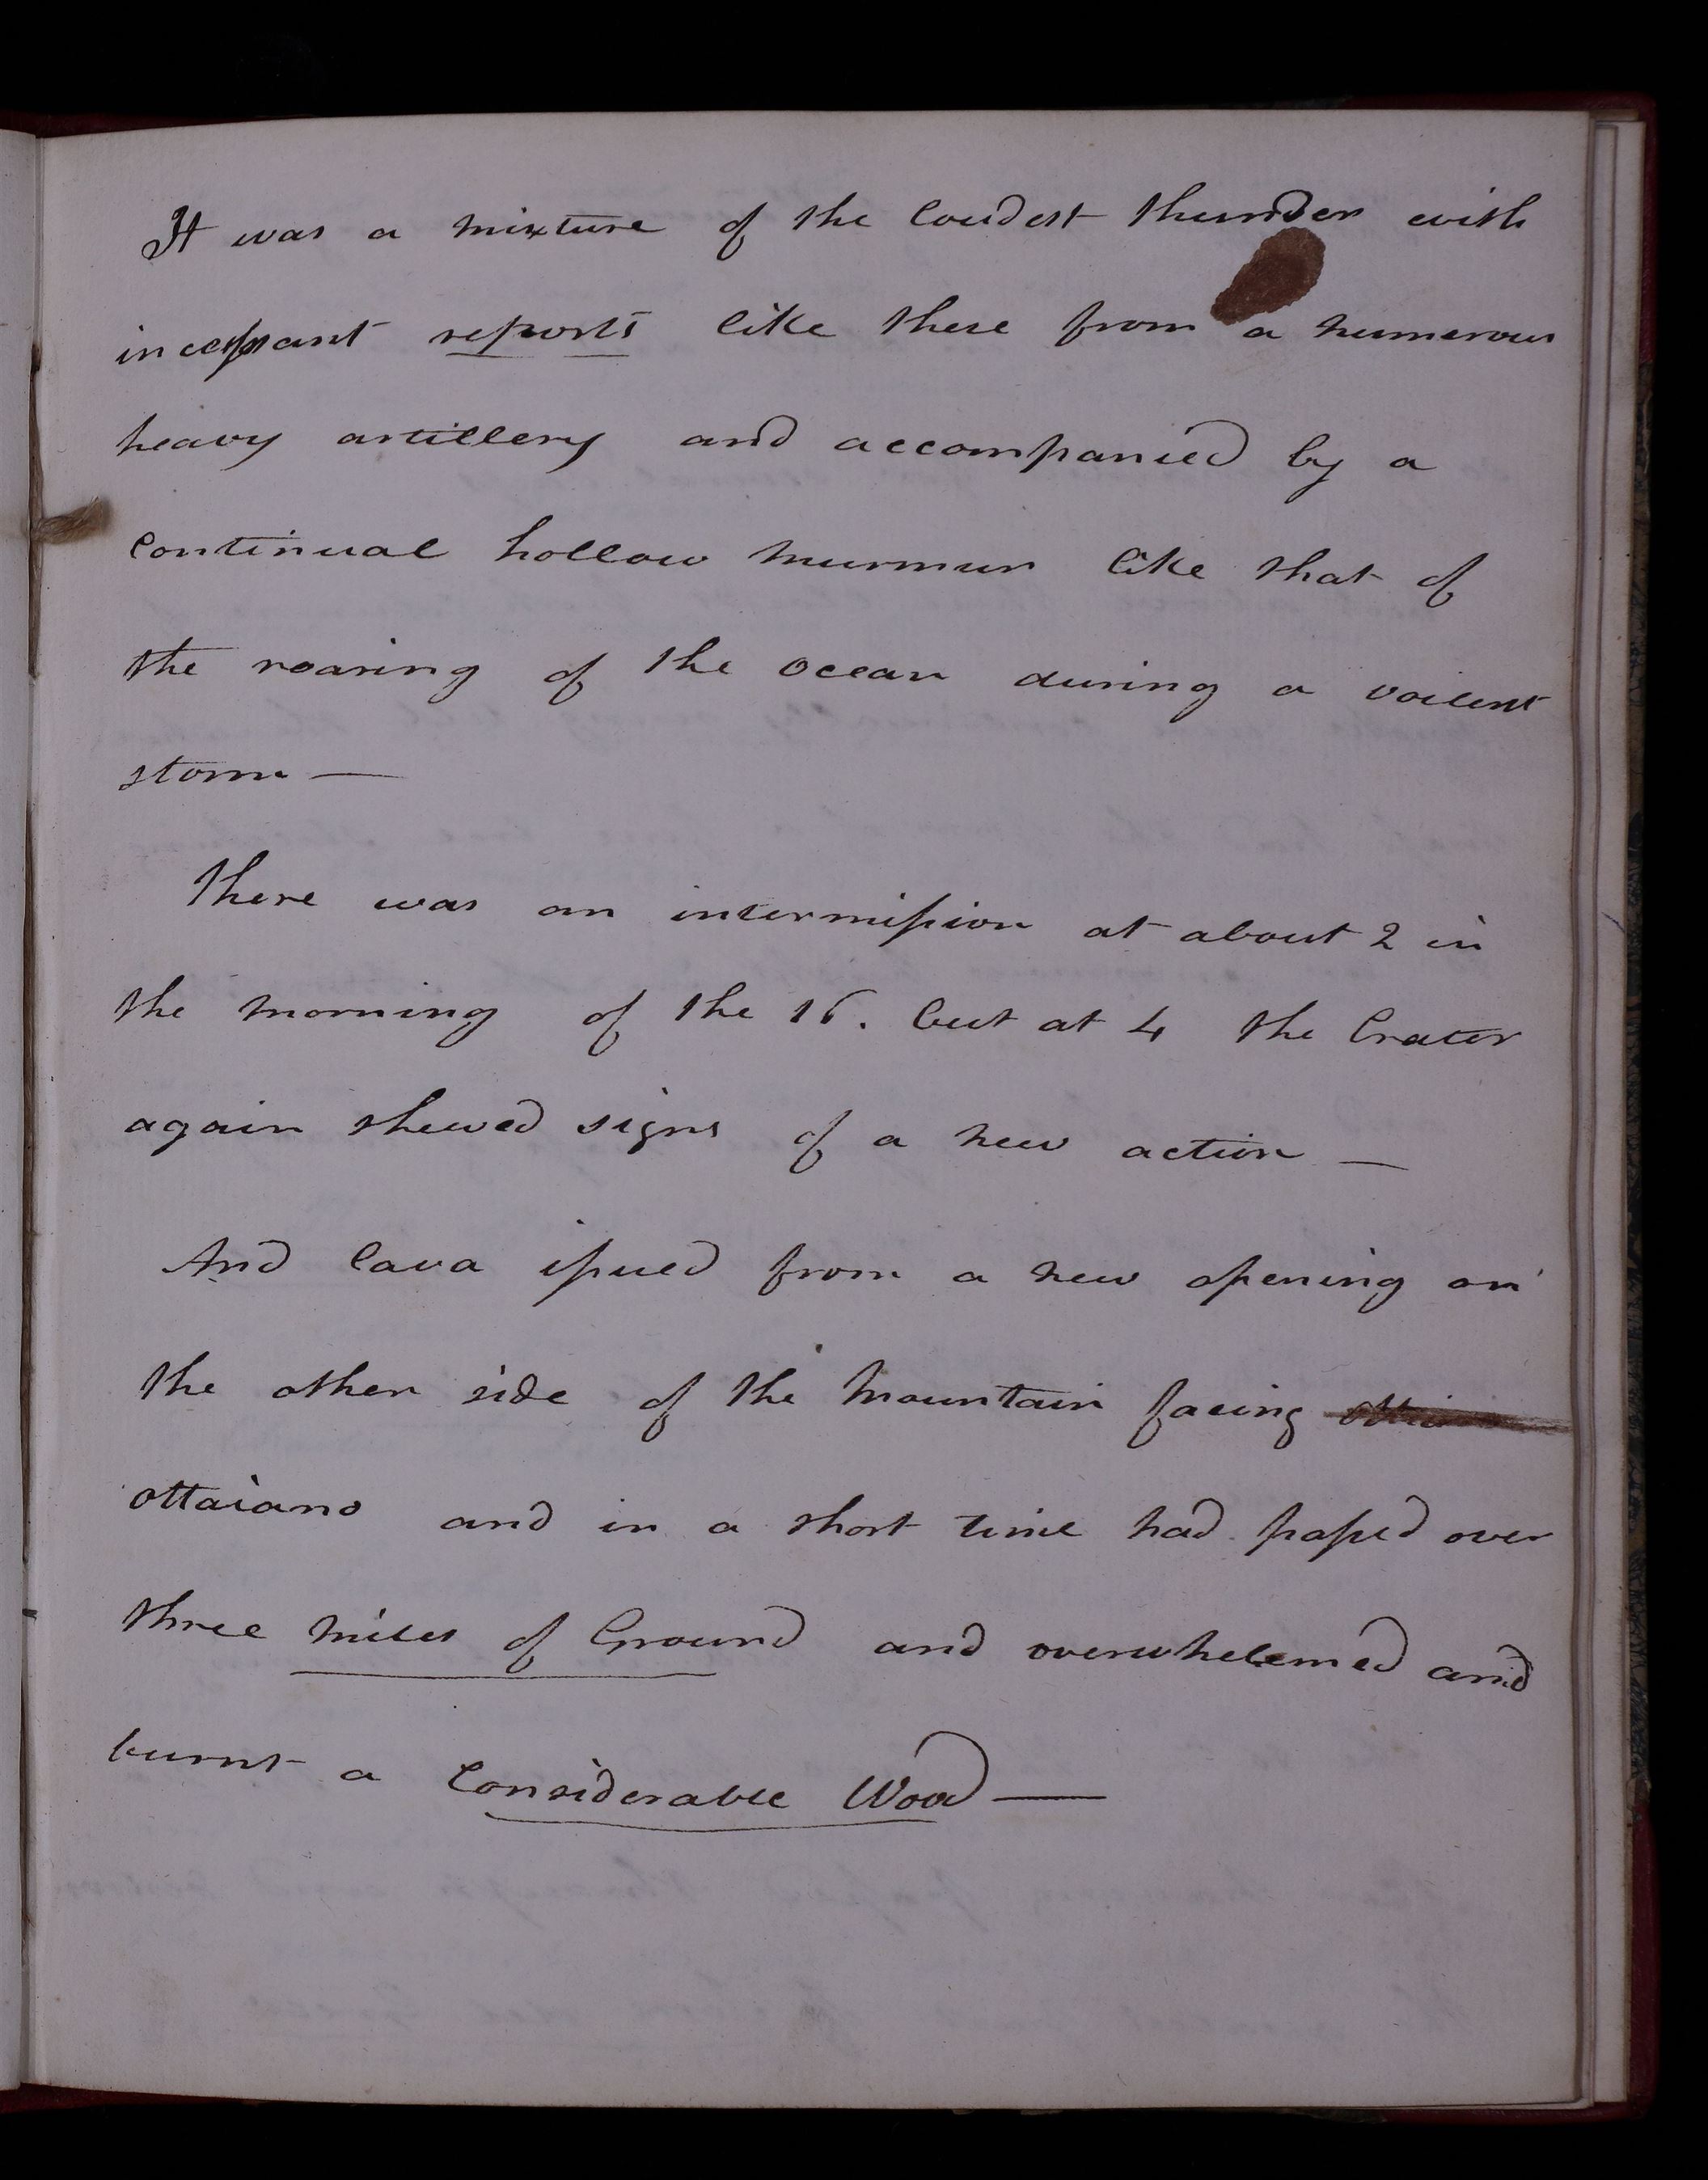 It was a mixture of the loudest thunder with
incessant reports like these from a numerous
heavy artillery and accompanied by a
continual hollow murmur like that of
the roaring of the ocean during a voilent
storm —
There was an intermission at about 2 in
the morning of the 16. but at 4 the Crater
again shewed signs of a new action —
And lava issued from a new opening on
the other side of the Mountain facing
ottaiano and in a short time had passed over
three miles of Ground and overwhelemed and
burnt a Considerable Wood —